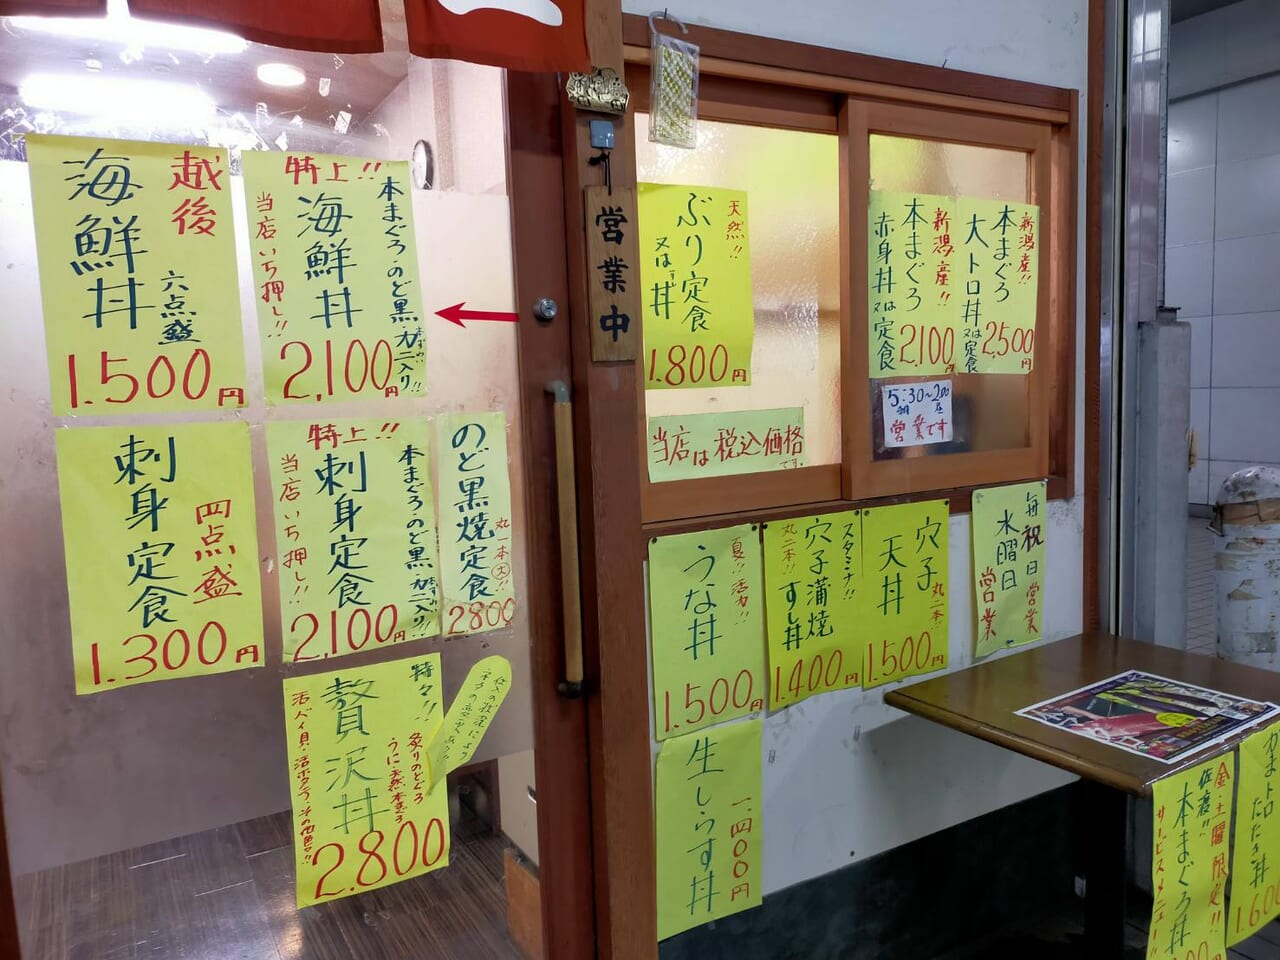 越後
海鮮丼
六点盛
1.500円
特上!!
本まぐろのど黒
海鮮丼
当店いち押し!!
2,100円
刺身定食
四点盛
1.300円
特上!!
刺身定食
当店いち押し!!
2,100円
のど黒焼定食
丸一本大!!
2800
特々!!
贅沢丼
炙りのどぐろ
うに・天然本まぐろ
2.800
営業中
天然!!
ぶり定食
又は
丼
1.800円
当店は税込価格
です。
新潟産!!
本まぐろ
赤身丼又は定食
2,100円
新潟産!!
本まぐろ
大トロ丼又は定食
2,500円
5:30~2:00
朝
昼
営業です
夏!!活力!!
うな丼
1.500円
スタミナ!!
穴子蒲焼
すし丼
丸二本!!
1.400円
穴子
天丼
丸二本!!
1.500円
毎祝日営業
水曜日
営業
生しらす丼
一.四〇〇円
金土曜限定!!
佐渡!!
本まぐろ丼
サービスメニュー!!
たたき丼
1.600